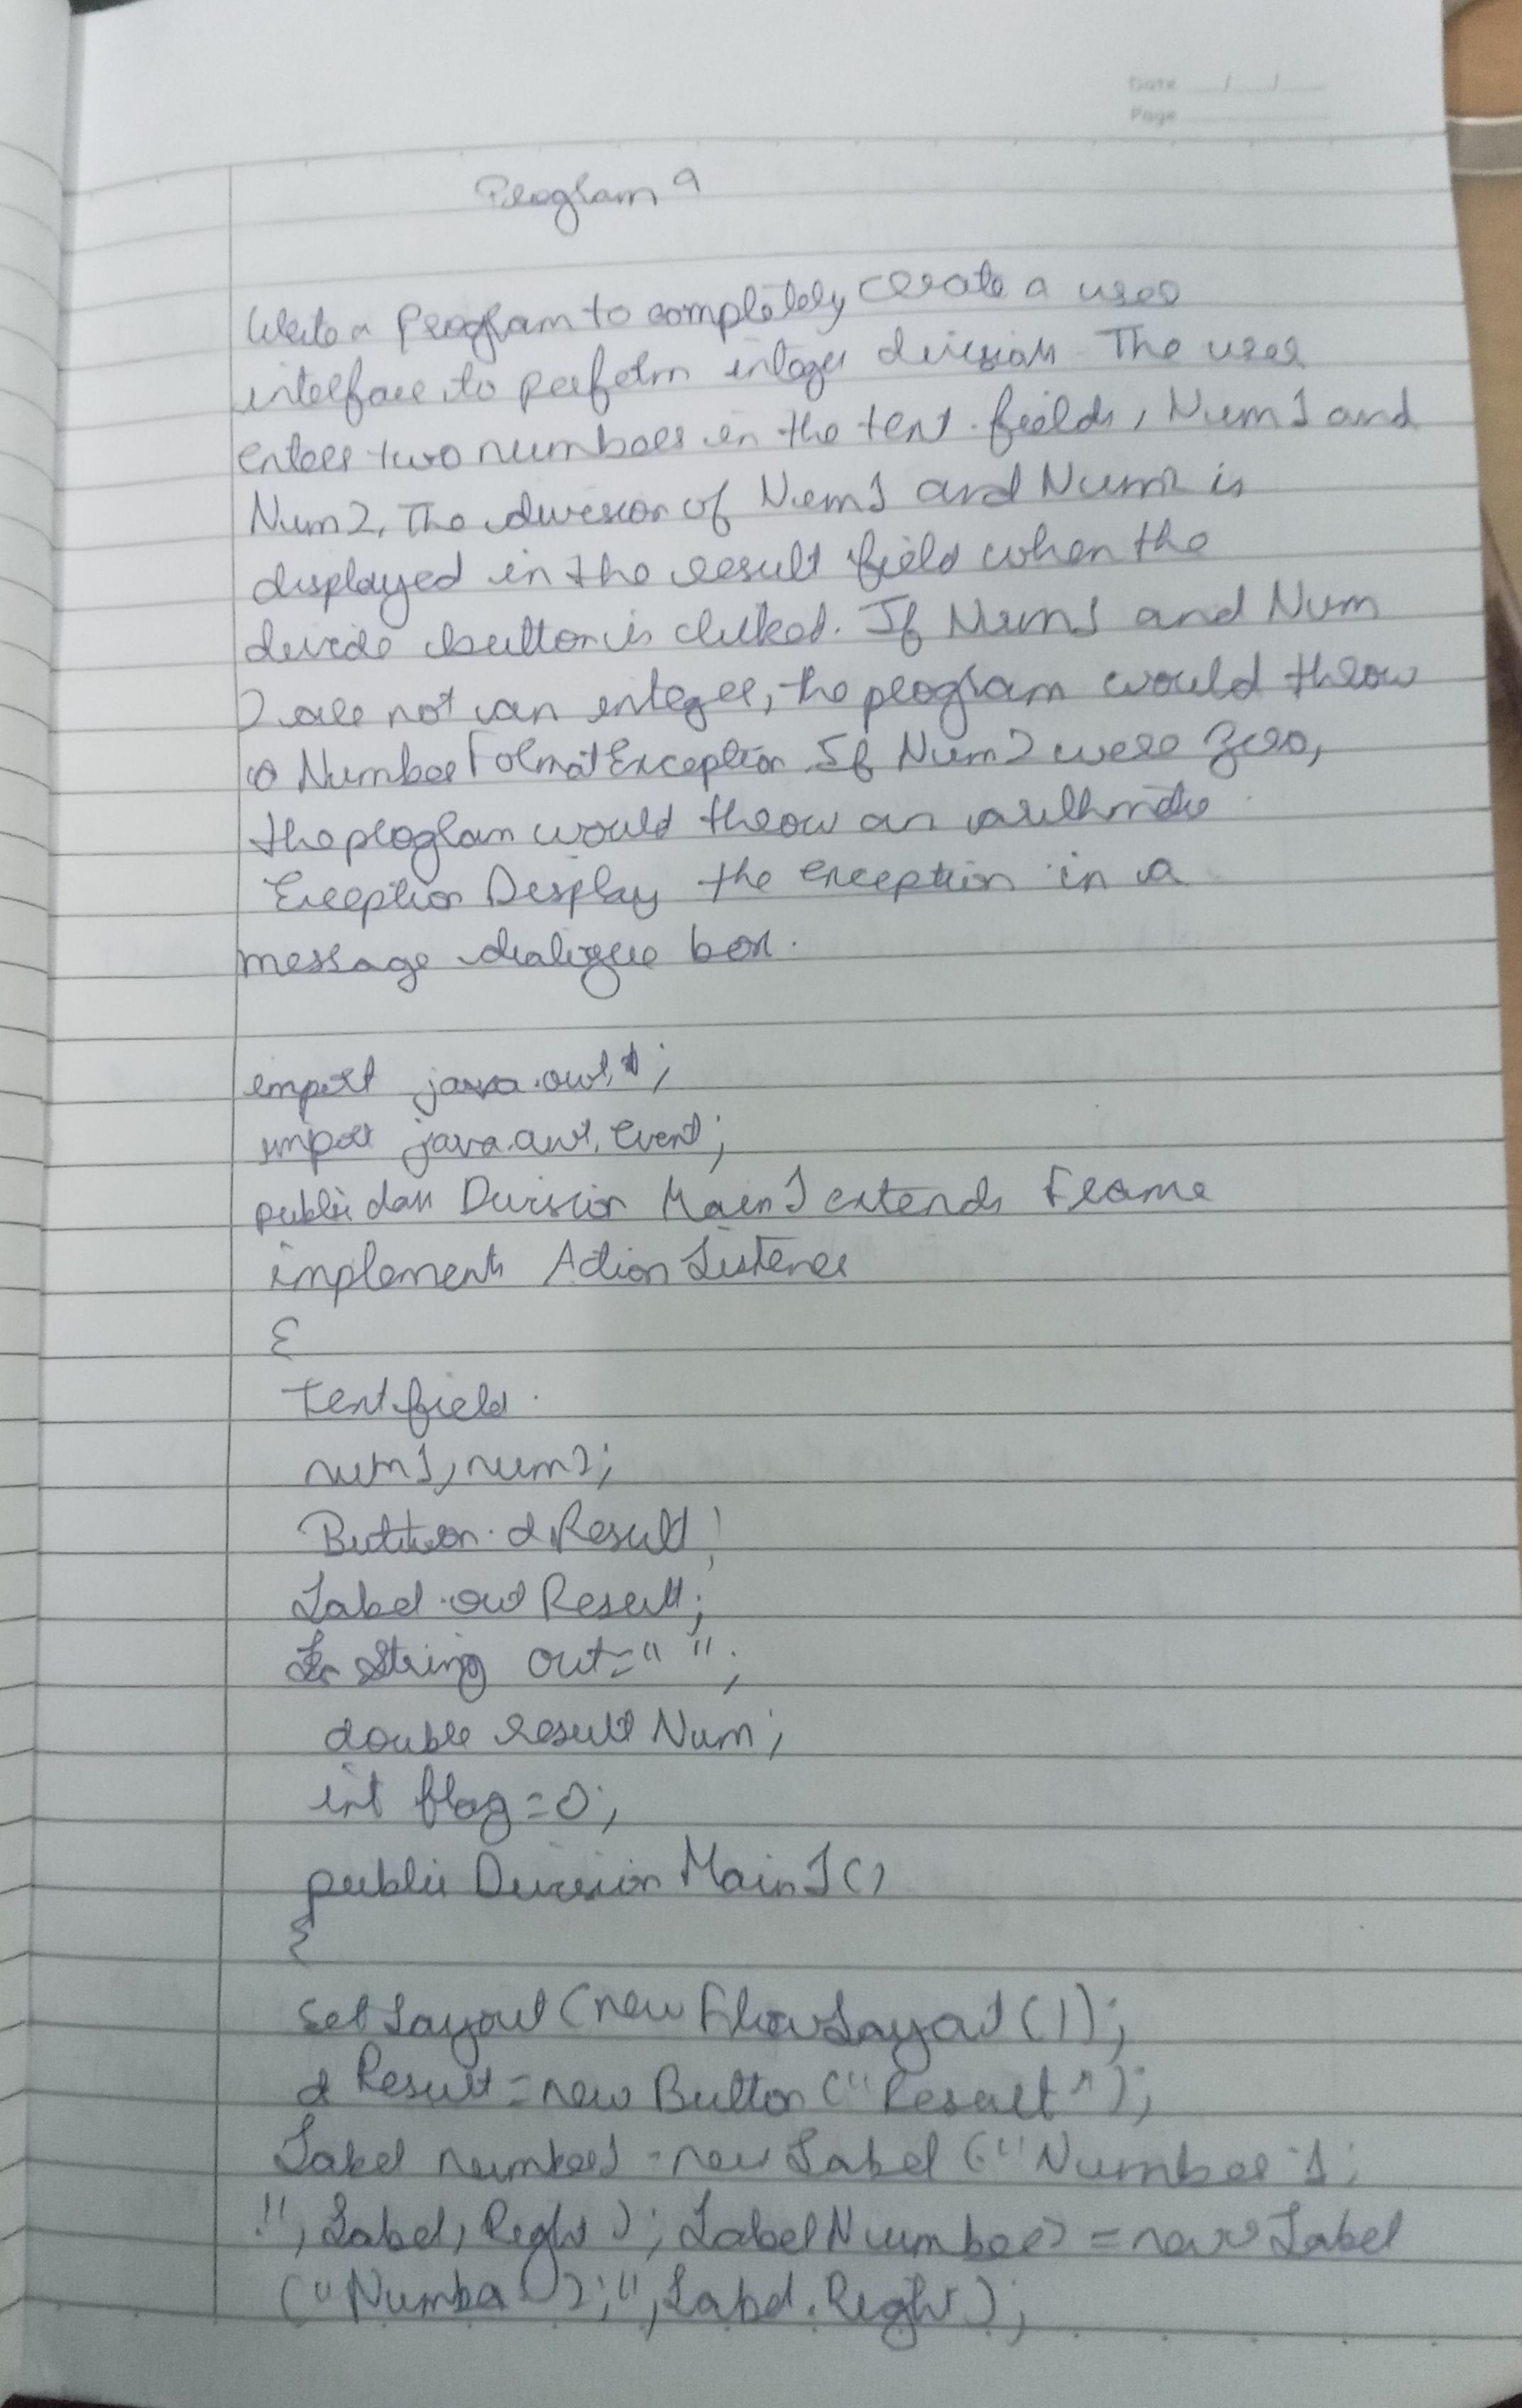 Date __/__/__
Page
Program 9
Write a Program to completely create a user
interface to perform integer division. The user
enters two numbers in the text fields, Num1 and
Num2. The division of Num1 and Num2 is
displayed in the result field when the
divide button is clicked. If Num1 and Num
2 are not an integer, the program would throw
a NumberFormatException If Num2 were zero,
the program would throw an arithmetic
Exception Display the exception in a
message dialogue box.
import java.awt.*;
import java.awt.event;
public class Division Main1 extends Frame
implements Action Listener
{
Textfield
num1, num2;
Button dResult;
Label out Result;
String out=" ";
double result Num;
int flag=0;
public Division Main1()
{
set Layout (new Flow Layout ());
d Result = new Button ("Result");
Label number1 = new Label ("Number 1:
", Label, Right); Label Number2 = new Label
("Number 2:", Label.Right);